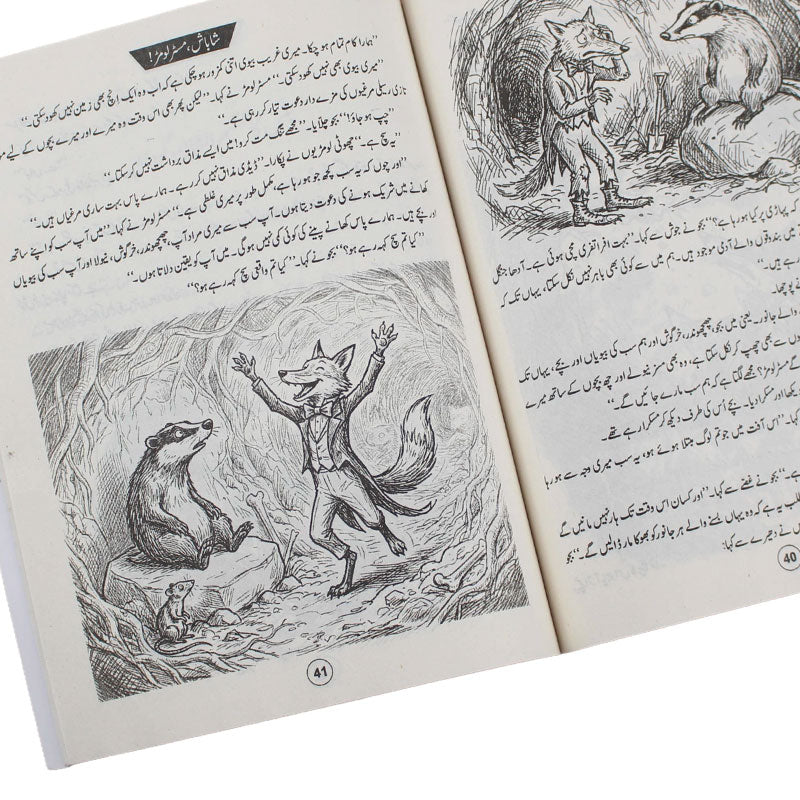 کہ پہاڑی پر کیا ہو رہا ہے؟" بجو نے جوش سے کہا۔ "بہت افراتفری مچی ہوئی ہے۔ آدھا جنگل
میں بندوقوں والے آدمی موجود ہیں۔ ہم میں سے کوئی بھی باہر نہیں نکل سکتا، یہاں تک کہ
رہے ہیں۔"
نے پوچھا۔
والے جانور۔ یعنی میں بجو، چھچھوندر، خرگوش اور ہم سب کی بیویاں اور بچے، یہاں تک
سے بھی چھپ کر نکل سکتا ہے، وہ بھی مسز نیولے اور چھ بچوں کے ساتھ میرے
گے مسٹر لومڑ؟ مجھے لگتا ہے کہ ہم سب مارے جائیں گے۔"
اور مسکرا دیا۔ بچے اُس کی طرف دیکھ کر مسکرا رہے تھے
کہا۔ "اس آفت میں جو تم لوگ مبتلا ہوئے ہو، یہ سب میری وجہ سے ہو رہا
ہے۔" بجو نے غصے سے کہا۔ "اور کسان اس وقت تک ہار نہیں مانیں گے
یہ ہے کہ وہ یہاں بسنے والے ہر جانور کو بھوکا مار ڈالیں گے۔" بجو
نے دھیرے سے کہا:
40
شاباش، مسٹر لومڑ!
"ہمارا کام تمام ہو چکا۔ میری غریب بیوی اتنی کمزور ہو چکی ہے کہ اب وہ ایک انچ بھی زمین نہیں کھود سکتی۔"
"میری بیوی بھی نہیں کھود سکتی۔" مسٹر لومڑ نے کہا۔ "لیکن پھر بھی اس وقت وہ میرے اور میرے بچوں کے لیے موٹی
تازی رسیلی مرغیوں کی مزے دار دعوت تیار کر رہی ہے۔"
"چپ ہو جاؤ!" بجو چلایا۔ "مجھے تنگ مت کرو! میں ایسے مذاق برداشت نہیں کر سکتا۔"
"یہ سچ ہے۔" چھوٹی لومڑیوں نے پکارا۔ "ڈیڈی مذاق نہیں کر رہے۔ ہمارے پاس بہت ساری مرغیاں ہیں۔"
"اور چوں کہ یہ سب کچھ جو ہو رہا ہے، مکمل طور پر میری غلطی ہے۔" مسٹر لومڑ نے کہا۔ "میں آپ کو اپنے ساتھ
کھانے میں شریک ہونے کی دعوت دیتا ہوں۔ آپ سب سے میری مراد آپ، چھچھوندر، خرگوش، نیولا اور آپ سب کی بیویاں
اور بچے ہیں۔ ہمارے پاس کھانے پینے کی کوئی کمی نہیں ہوگی۔ میں آپ کو یقین دلاتا ہوں۔"
"کیا تم سچ کہہ رہے ہو؟" بجو نے کہا۔ "کیا تم واقعی سچ کہہ رہے ہو؟"
41